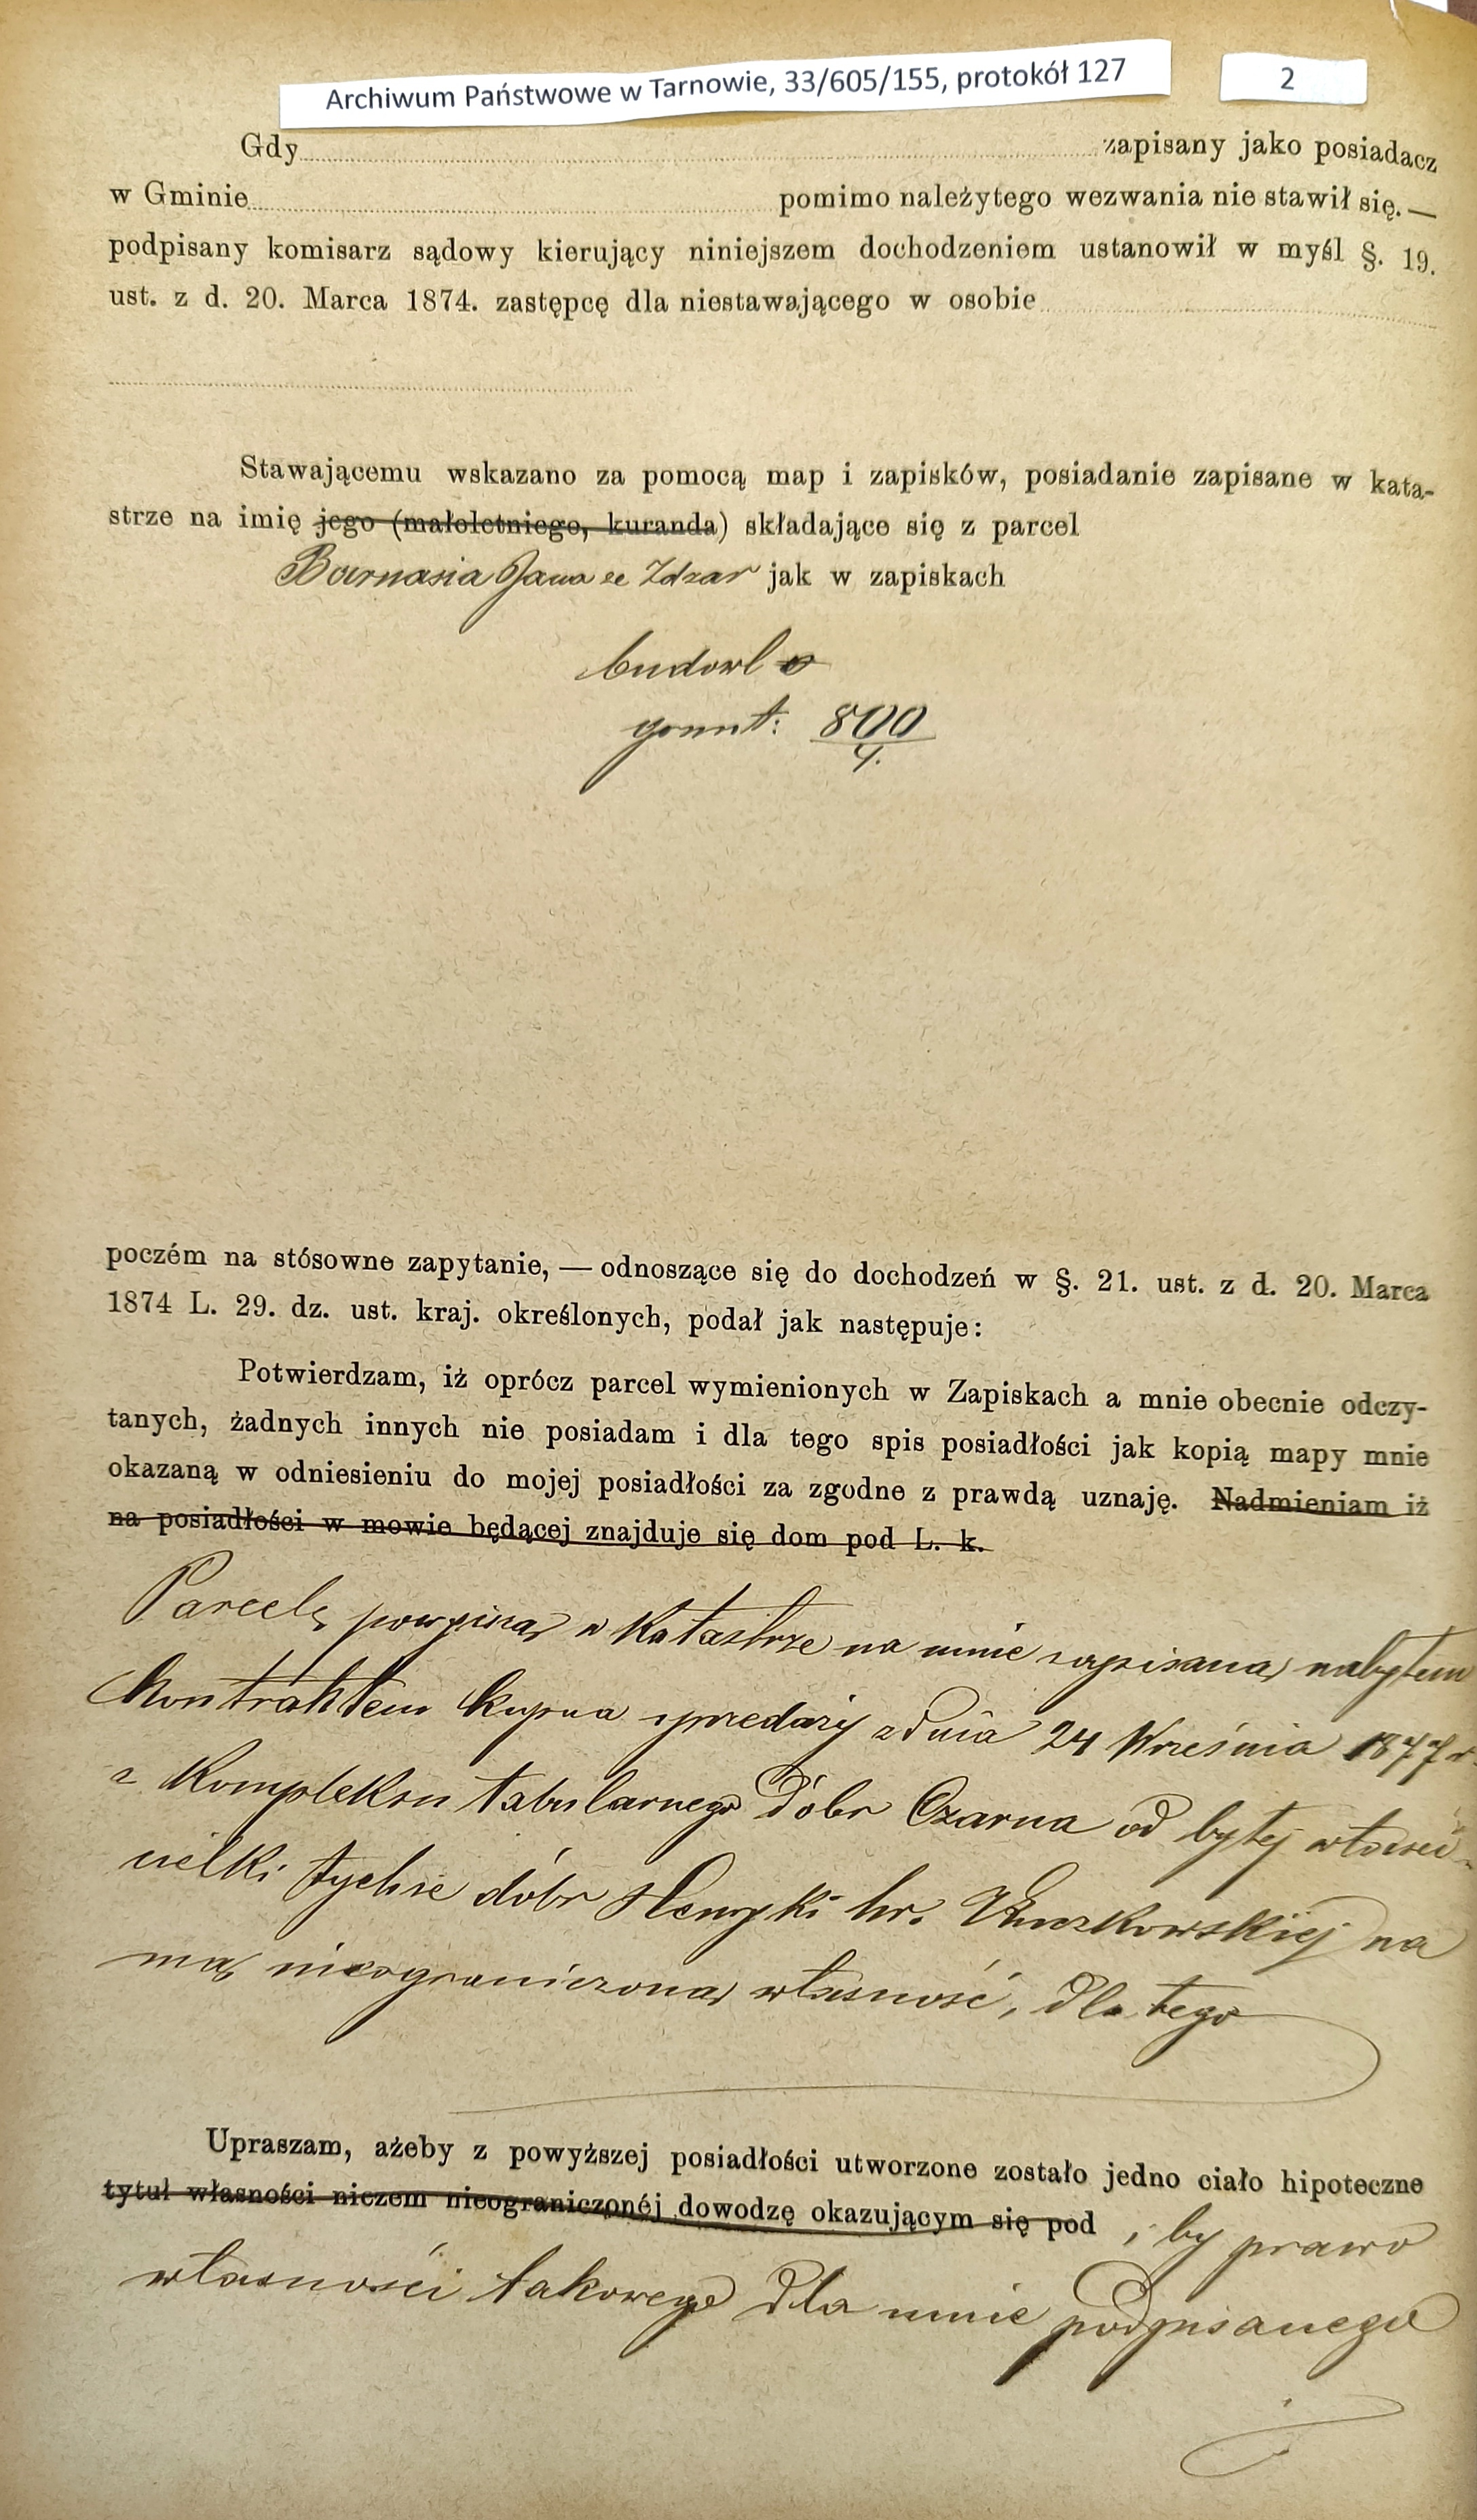 Archiwum Państwowe w Tarnowie, 33/605/155, protokół 127
2
Gdy zapisany jako posiadacz
w Gminie pomimo należytego wezwania nie stawił się. —
podpisany komisarz sądowy kierujący niniejszem dochodzeniem ustanowił w myśl §. 19.
ust. z d. 20. Marca 1874. zastępcę dla niestawającego w osobie
Stawającemu wskazano za pomocą map i zapisków, posiadanie zapisane w kata-
strze na imię jego (małoletniego, kuranda) składające się z parcel
Barnasia Jana ze Zdzar jak w zapiskach
budowl o
grunt: 800/4.
poczém na stósowne zapytanie, — odnoszące się do dochodzeń w §. 21. ust. z d. 20. Marca
1874 L. 29. dz. ust. kraj. określonych, podał jak następuje:
Potwierdzam, iż oprócz parcel wymienionych w Zapiskach a mnie obecnie odczy-
tanych, żadnych innych nie posiadam i dla tego spis posiadłości jak kopią mapy mnie
okazaną w odniesieniu do mojej posiadłości za zgodne z prawdą uznaję. Nadmieniam iż
na posiadłości w mowie będącej znajduje się dom pod L. k.
Parcelę powyższą w Katastrze na mnie zapisaną nabyłem
Kontraktem kupna sprzedaży z dnia 24 Września 1877 r.
z Kompleksu tabularnego dóbr Czarna od byłej właści-
cielki tychże dóbr Henryki hr. na
mą nieograniczoną własność, dla tego
Upraszam, ażeby z powyższej posiadłości utworzone zostało jedno ciało hipoteczne
tytuł własności niczem nieograniczonéj dowodzę okazującym się pod , by prawo
własności takowego dla mnie podpisanego